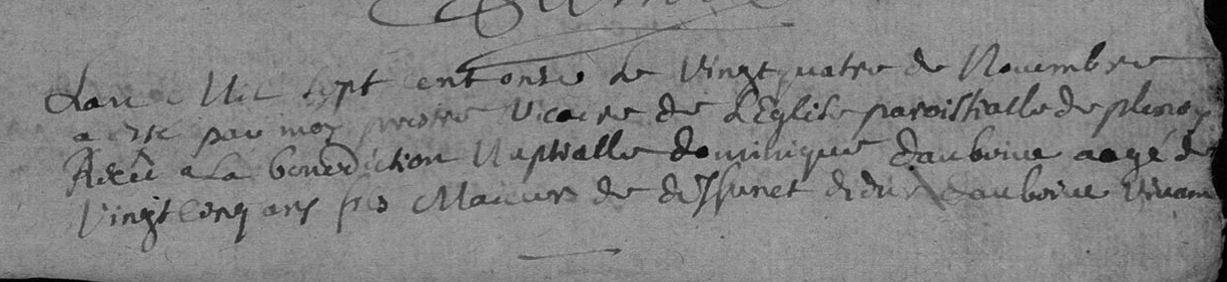 Lan Mil sept cent onze le Vingt quatre de Novembre
a este par moy prestre Vicaire de L'Eglise paroissialle de
Receu a La benediction Nuptialle dominique dauboine aagé de
Vingt cinq ans fils Maieur de deffunct didier dauboine Vivant